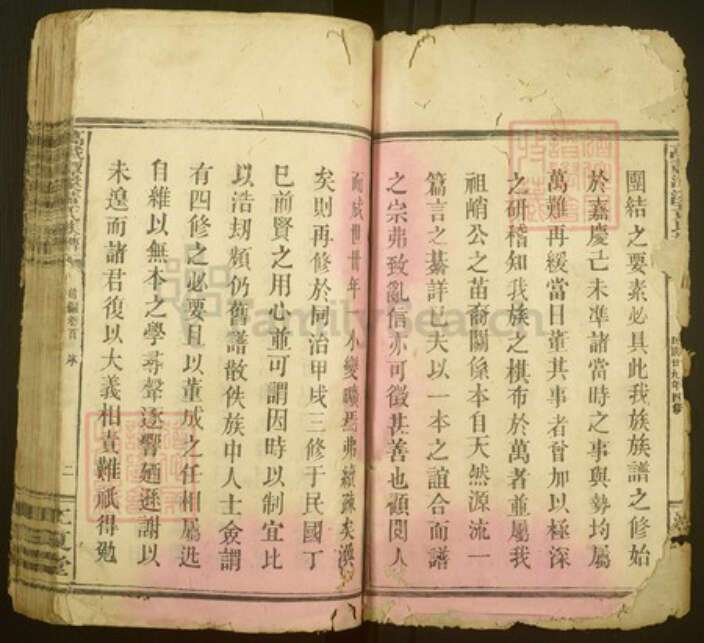 團結之要素必具此我族族譜之修始
於嘉慶己未準諸當時之事與勢均屬
萬難再緩當日董其事者曾加以極深
之研稽知我族之棋布於萬者並屬我
祖峭公之苗裔關係本自天然源流一
篇言之綦詳已夫以一本之誼合而譜
之崇弗致亂信亦可徵甚善也顧閱人
而成世卅年一小變曠焉弗續疎矣漠
矣則再修於同治甲戌三修于民國丁
巳前賢之用心並可謂因時以制宜比
以浩劫頻仍舊譜散佚族中人士僉謂
有四修之必要且以董成之任相屬迅
自維以無本之學尋聲逐響廼遜謝以
未遑而諸君復以大義相責難祇得勉
民國廿九年四修
首
序
二
FamilySearch